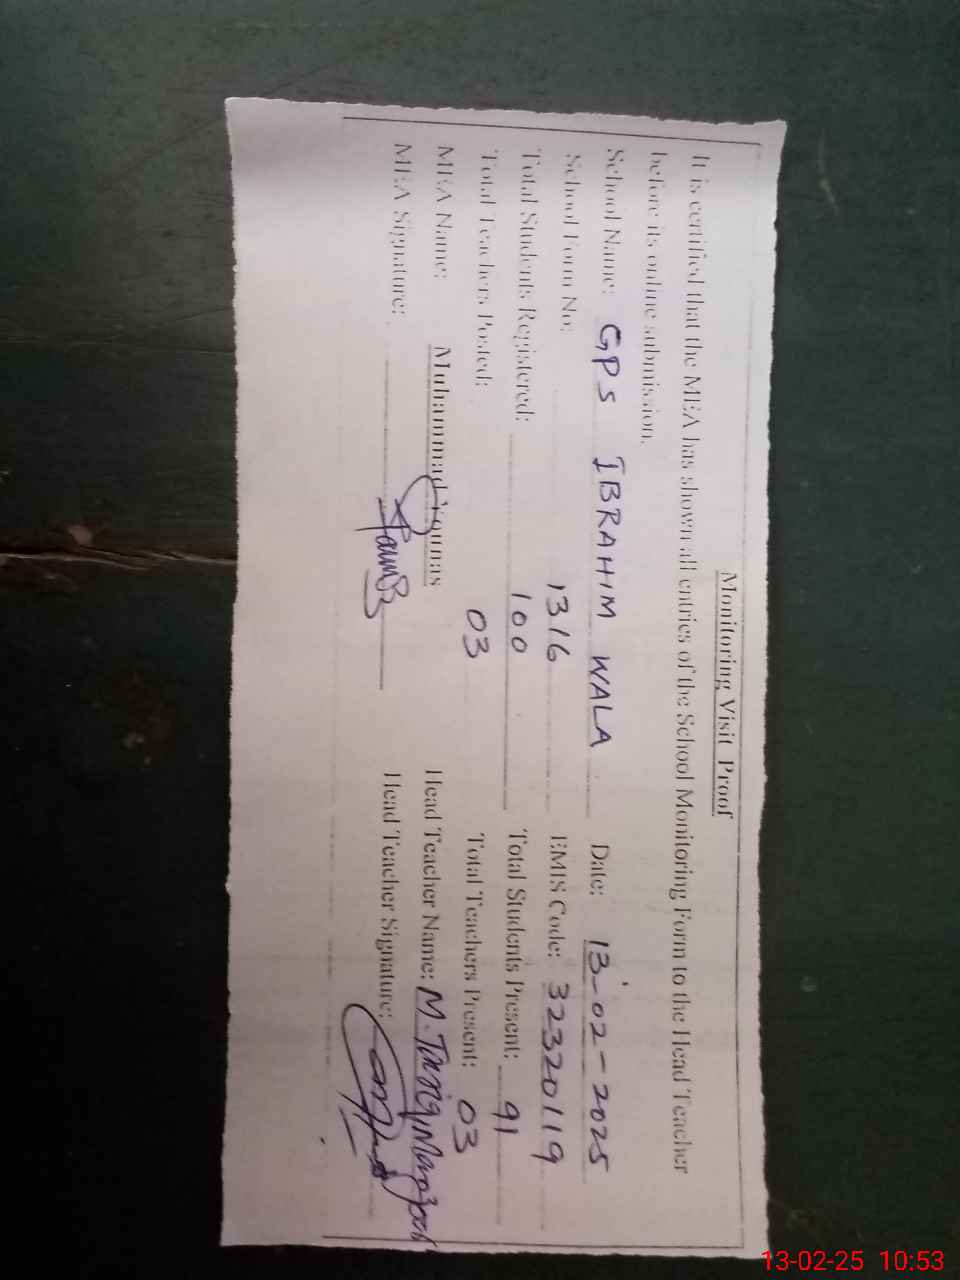 Monitoring Visit Proof
It is certified that the MEA has shown all entries of the School Monitoring Form to the Head Teacher
before its online submission.
School Name: GPS IBRAHIM WALA Date: 13-02-2025
School Form No: 1316 EMIS Code: 32320119
Total Students Registered: 100 Total Students Present: 91
Total Teachers Posted: 03 Total Teachers Present: 03
MEA Name: Muhammad Younas Head Teacher Name: M. Tariq Manzoor
MEA Signature: Head Teacher Signature:
13-02-25 10:53